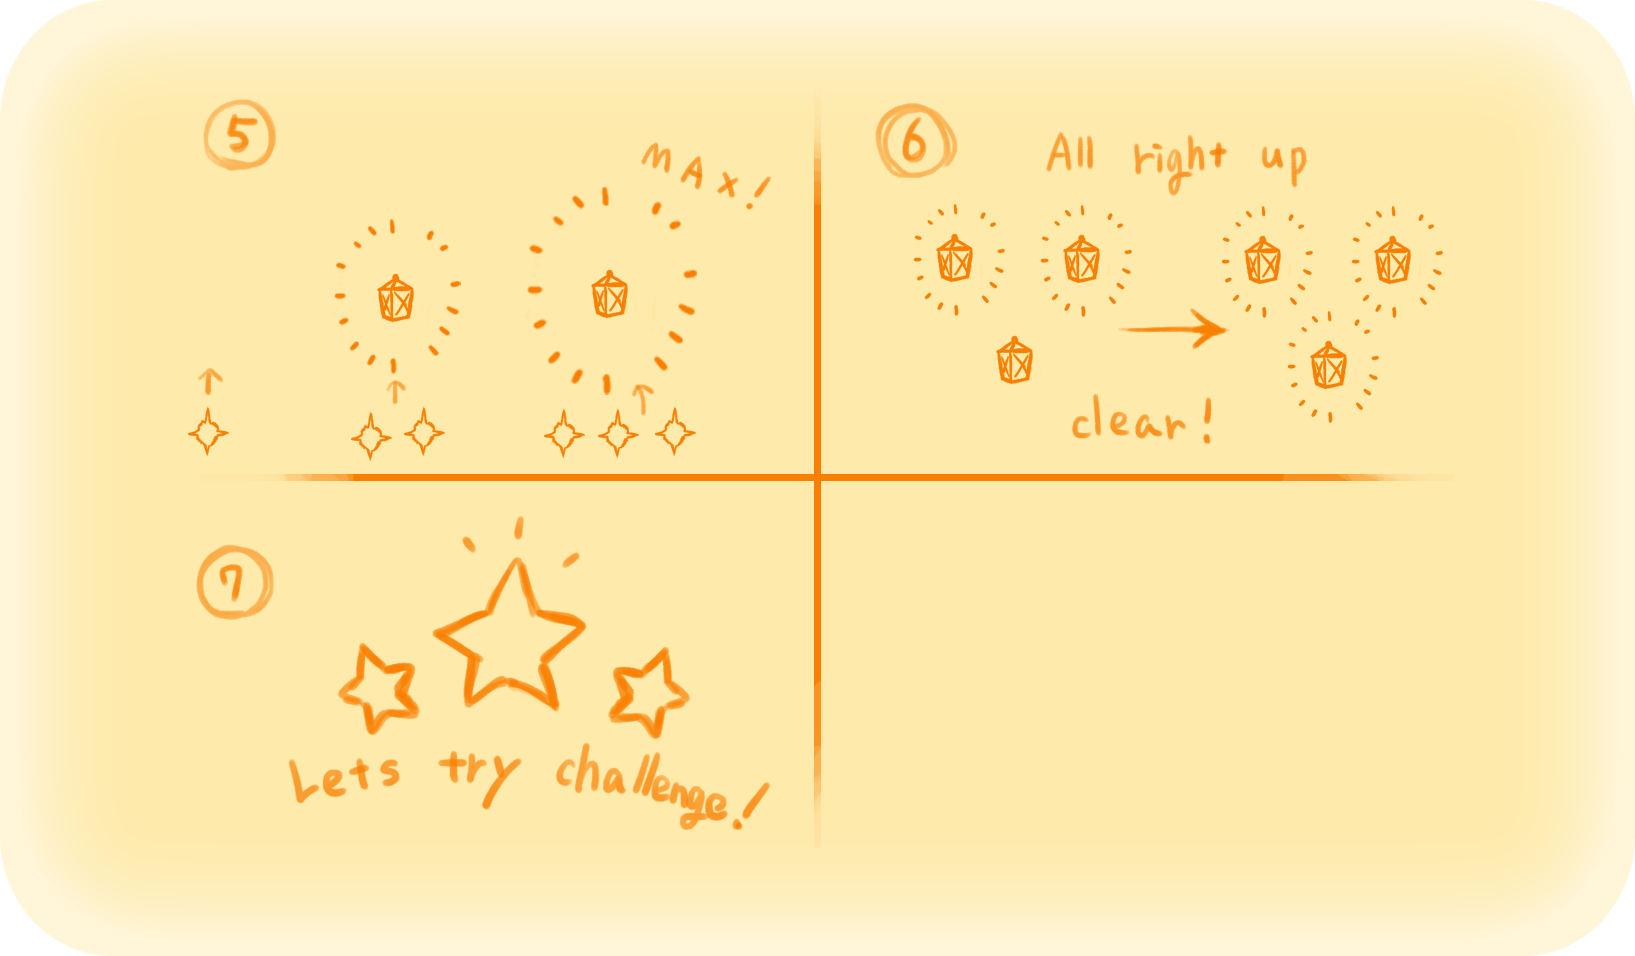 5
MAX!
6
All right up
clear!
7
Lets try challenge!